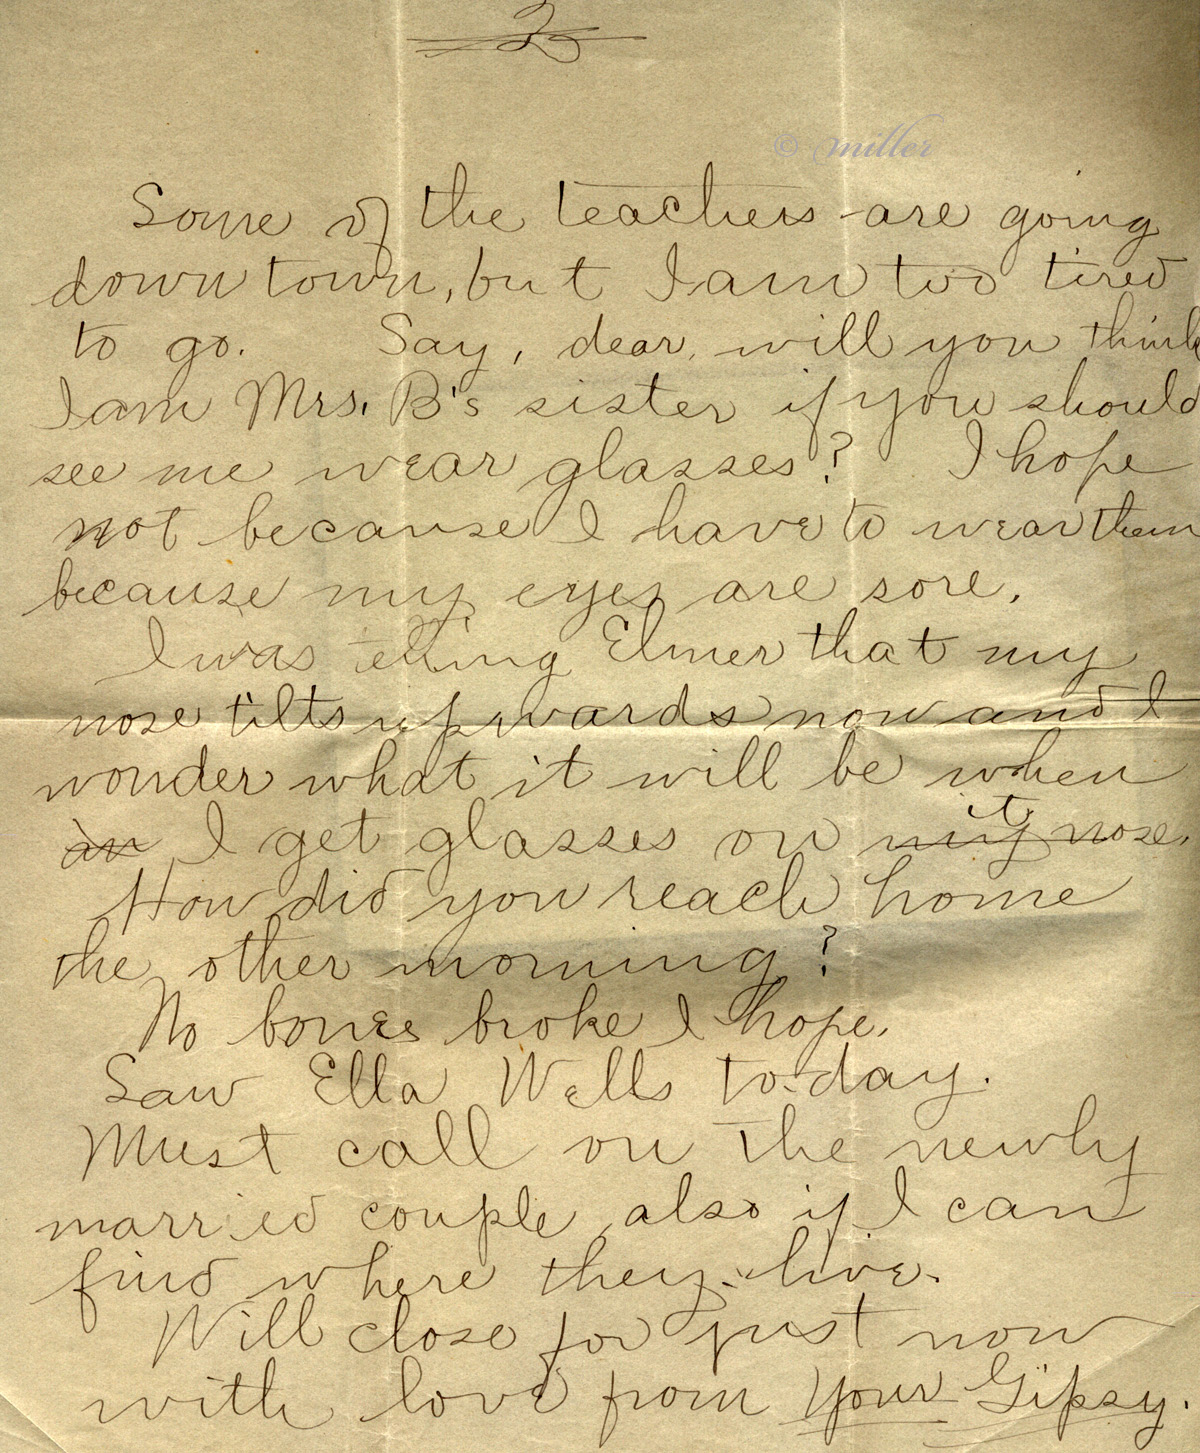 2
© miller
Some of the teachers are going
down town, but I am too tired
to go. Say, dear, will you think
I am Mrs. B's sister if you should
see me wear glasses? I hope
not because I have to wear them
because my eyes are sore.
I was telling Elmer that my
nose tilts upwards now and I
wonder what it will be when
an I get glasses on my it nose.
How did you reach home
the other morning?
No bones broke I hope.
Saw Ella Wells to-day.
Must call on the newly
married couple also if I can
find where they live.
Will close for just now
with love from Your Gipsy.